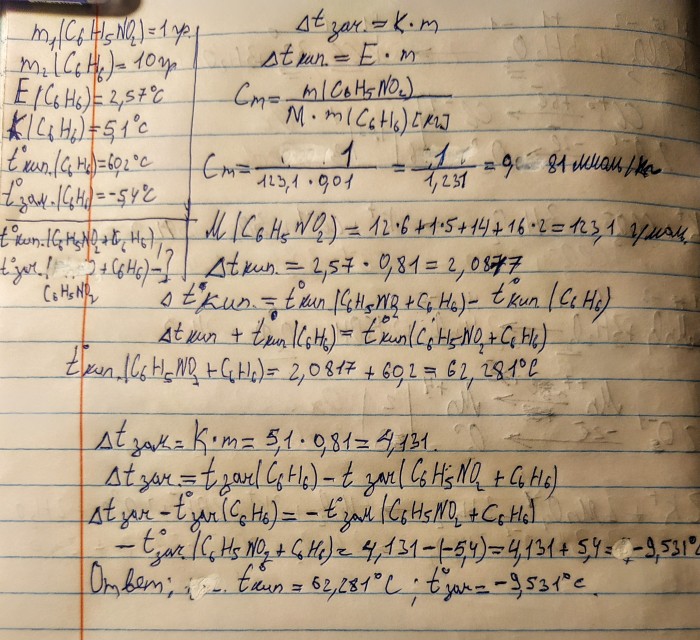 m₁(C₆H₅NO₂)=1 гр.
m₂(C₆H₆)=10 гр
E(C₆H₆)=2,57°C
K(C₆H₆)=5,1°C
t°кип.(C₆H₆)=60,2°C
t°зам.(C₆H₆)=-5,4°C
t°кип.(C₆H₅NO₂+C₆H₆),
t°зам.( +C₆H₆)-?
C₆H₅NO₂
Δtзам.=K·m
Δtкип.=E·m
Cm= m(C₆H₅NO₂) / M·m(C₆H₆)[кг]
Cm= 1 / 123,1·0,01 = 1 / 1,231 = 0,81 моль/кг
M(C₆H₅NO₂)=12·6+1·5+14+16·2=123,1 г/моль
Δtкип.=2,57·0,81=2,0817
Δt°кип.=t°кип(C₆H₅NO₂+C₆H₆)-t°кип(C₆H₆)
Δtкип+t°кип(C₆H₆)=t°кип(C₆H₅NO₂+C₆H₆)
t°кип.(C₆H₅NO₂+C₆H₆)=2,0817+60,2=62,281°C
Δtзам=K·m=5,1·0,81=4,131.
Δtзам.=tзам(C₆H₆)-tзам(C₆H₅NO₂+C₆H₆)
Δtзам-t°зам(C₆H₆)=-t°зам(C₆H₅NO₂+C₆H₆)
-t°зам.(C₆H₅NO₂+C₆H₆)=4,131-(-5,4)=4,131+5,4= -9,531°C
Ответ: t°кип=62,281°C; t°зам=-9,531°C.